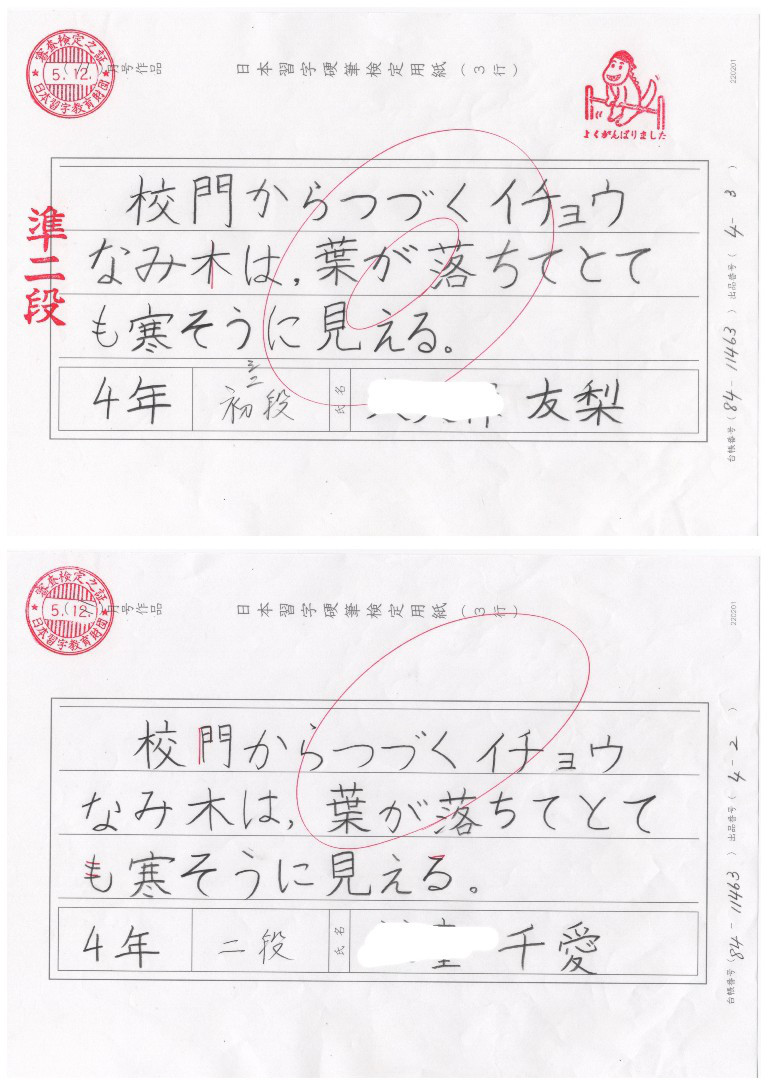 審査検定之証
5.12.
日本習字教育財団
月号作品
日本習字硬筆検定用紙(3行)
よくがんばりました
220201
準二段
校門からつづくイチョウ
なみ木は,葉が落ちてとて
も寒そうに見える。
4年
初段
氏名
友梨
出品番号(
台帳番号(
審査検定之証
5.12.
日本習字教育財団
月号作品
日本習字硬筆検定用紙(3行)
220201
校門からつづくイチョウ
なみ木は,葉が落ちてとて
も寒そうに見える。
4年
二段
氏名
千愛
出品番号(
台帳番号(